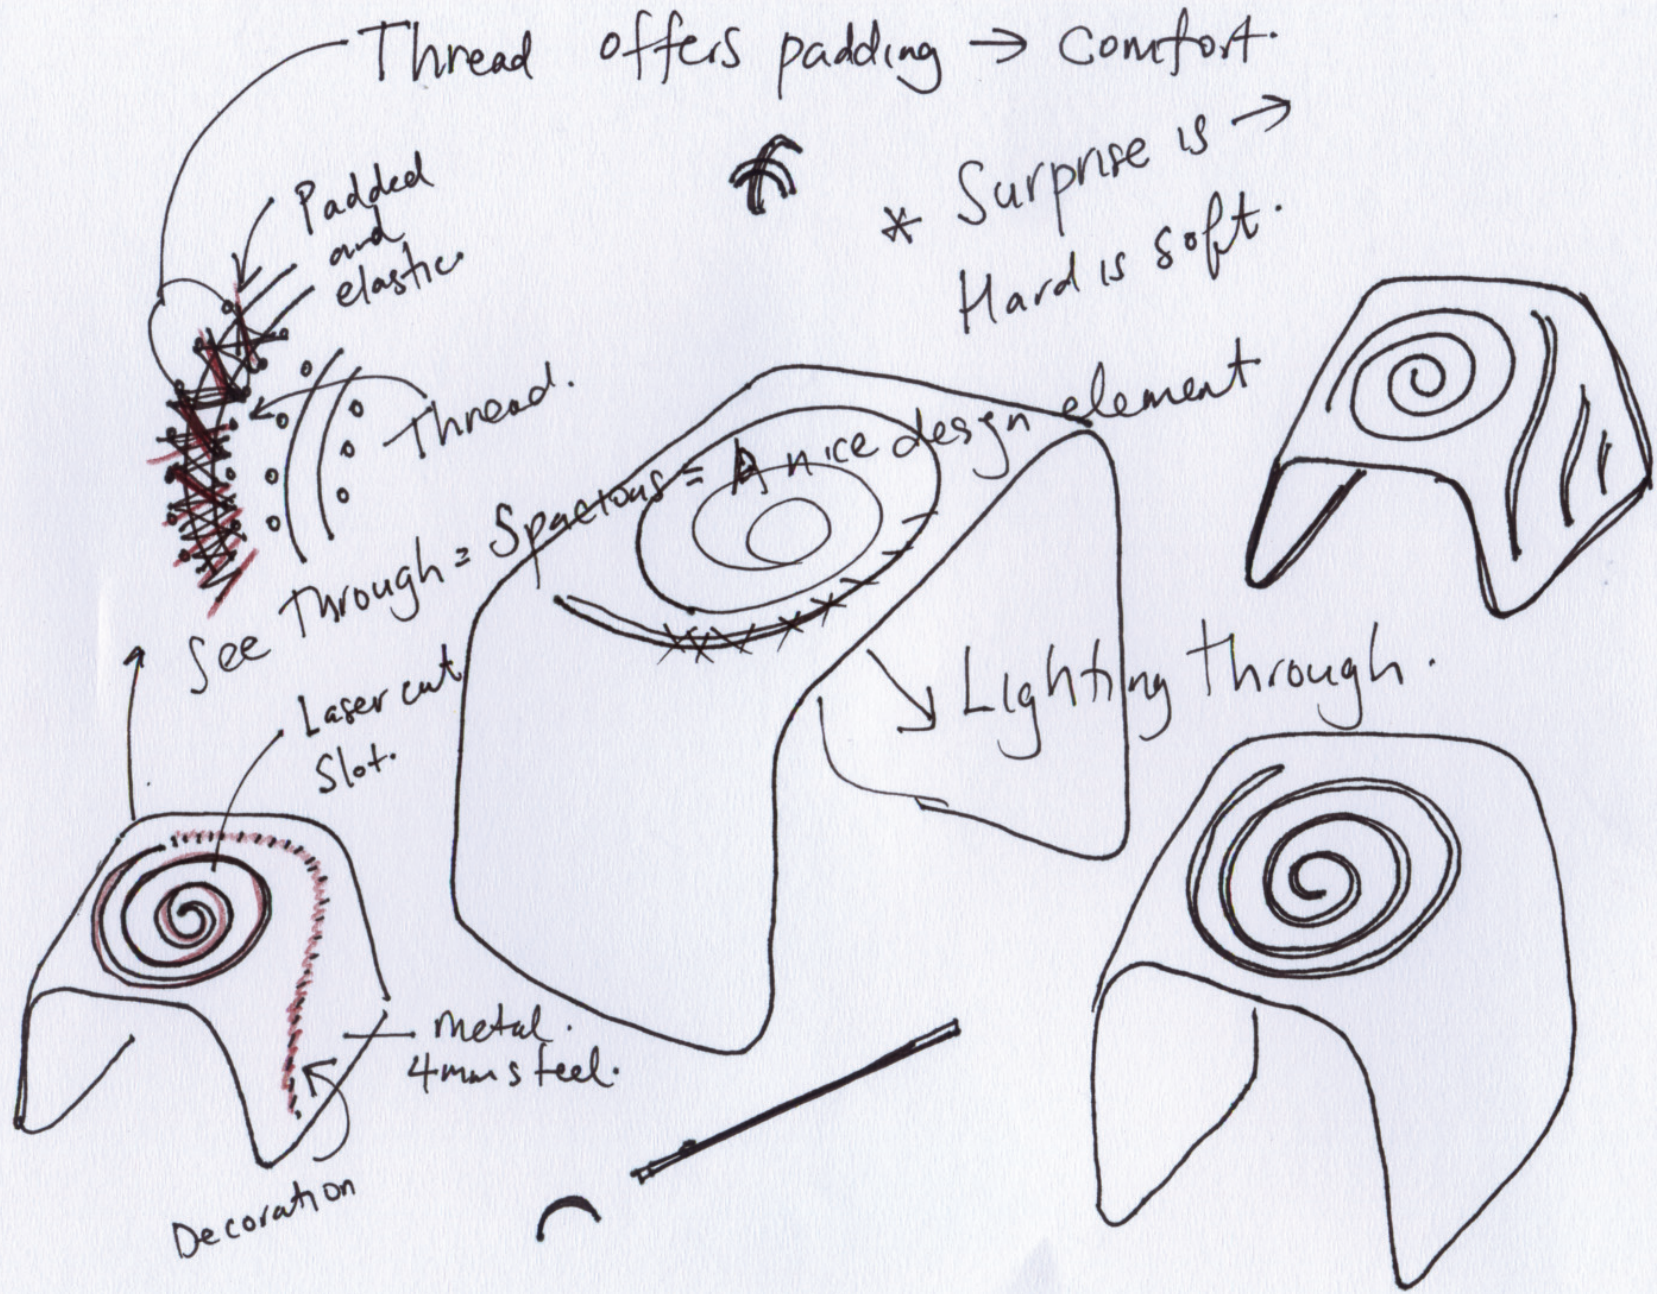 Thread offers padding → Comfort.
* Surprise is →
Hard is soft.
Padded
and
elastic.
Thread.
See Through = Spacious = A nice design element
Laser cut
Slot.
Lighting Through.
metal.
4mm steel.
Decoration